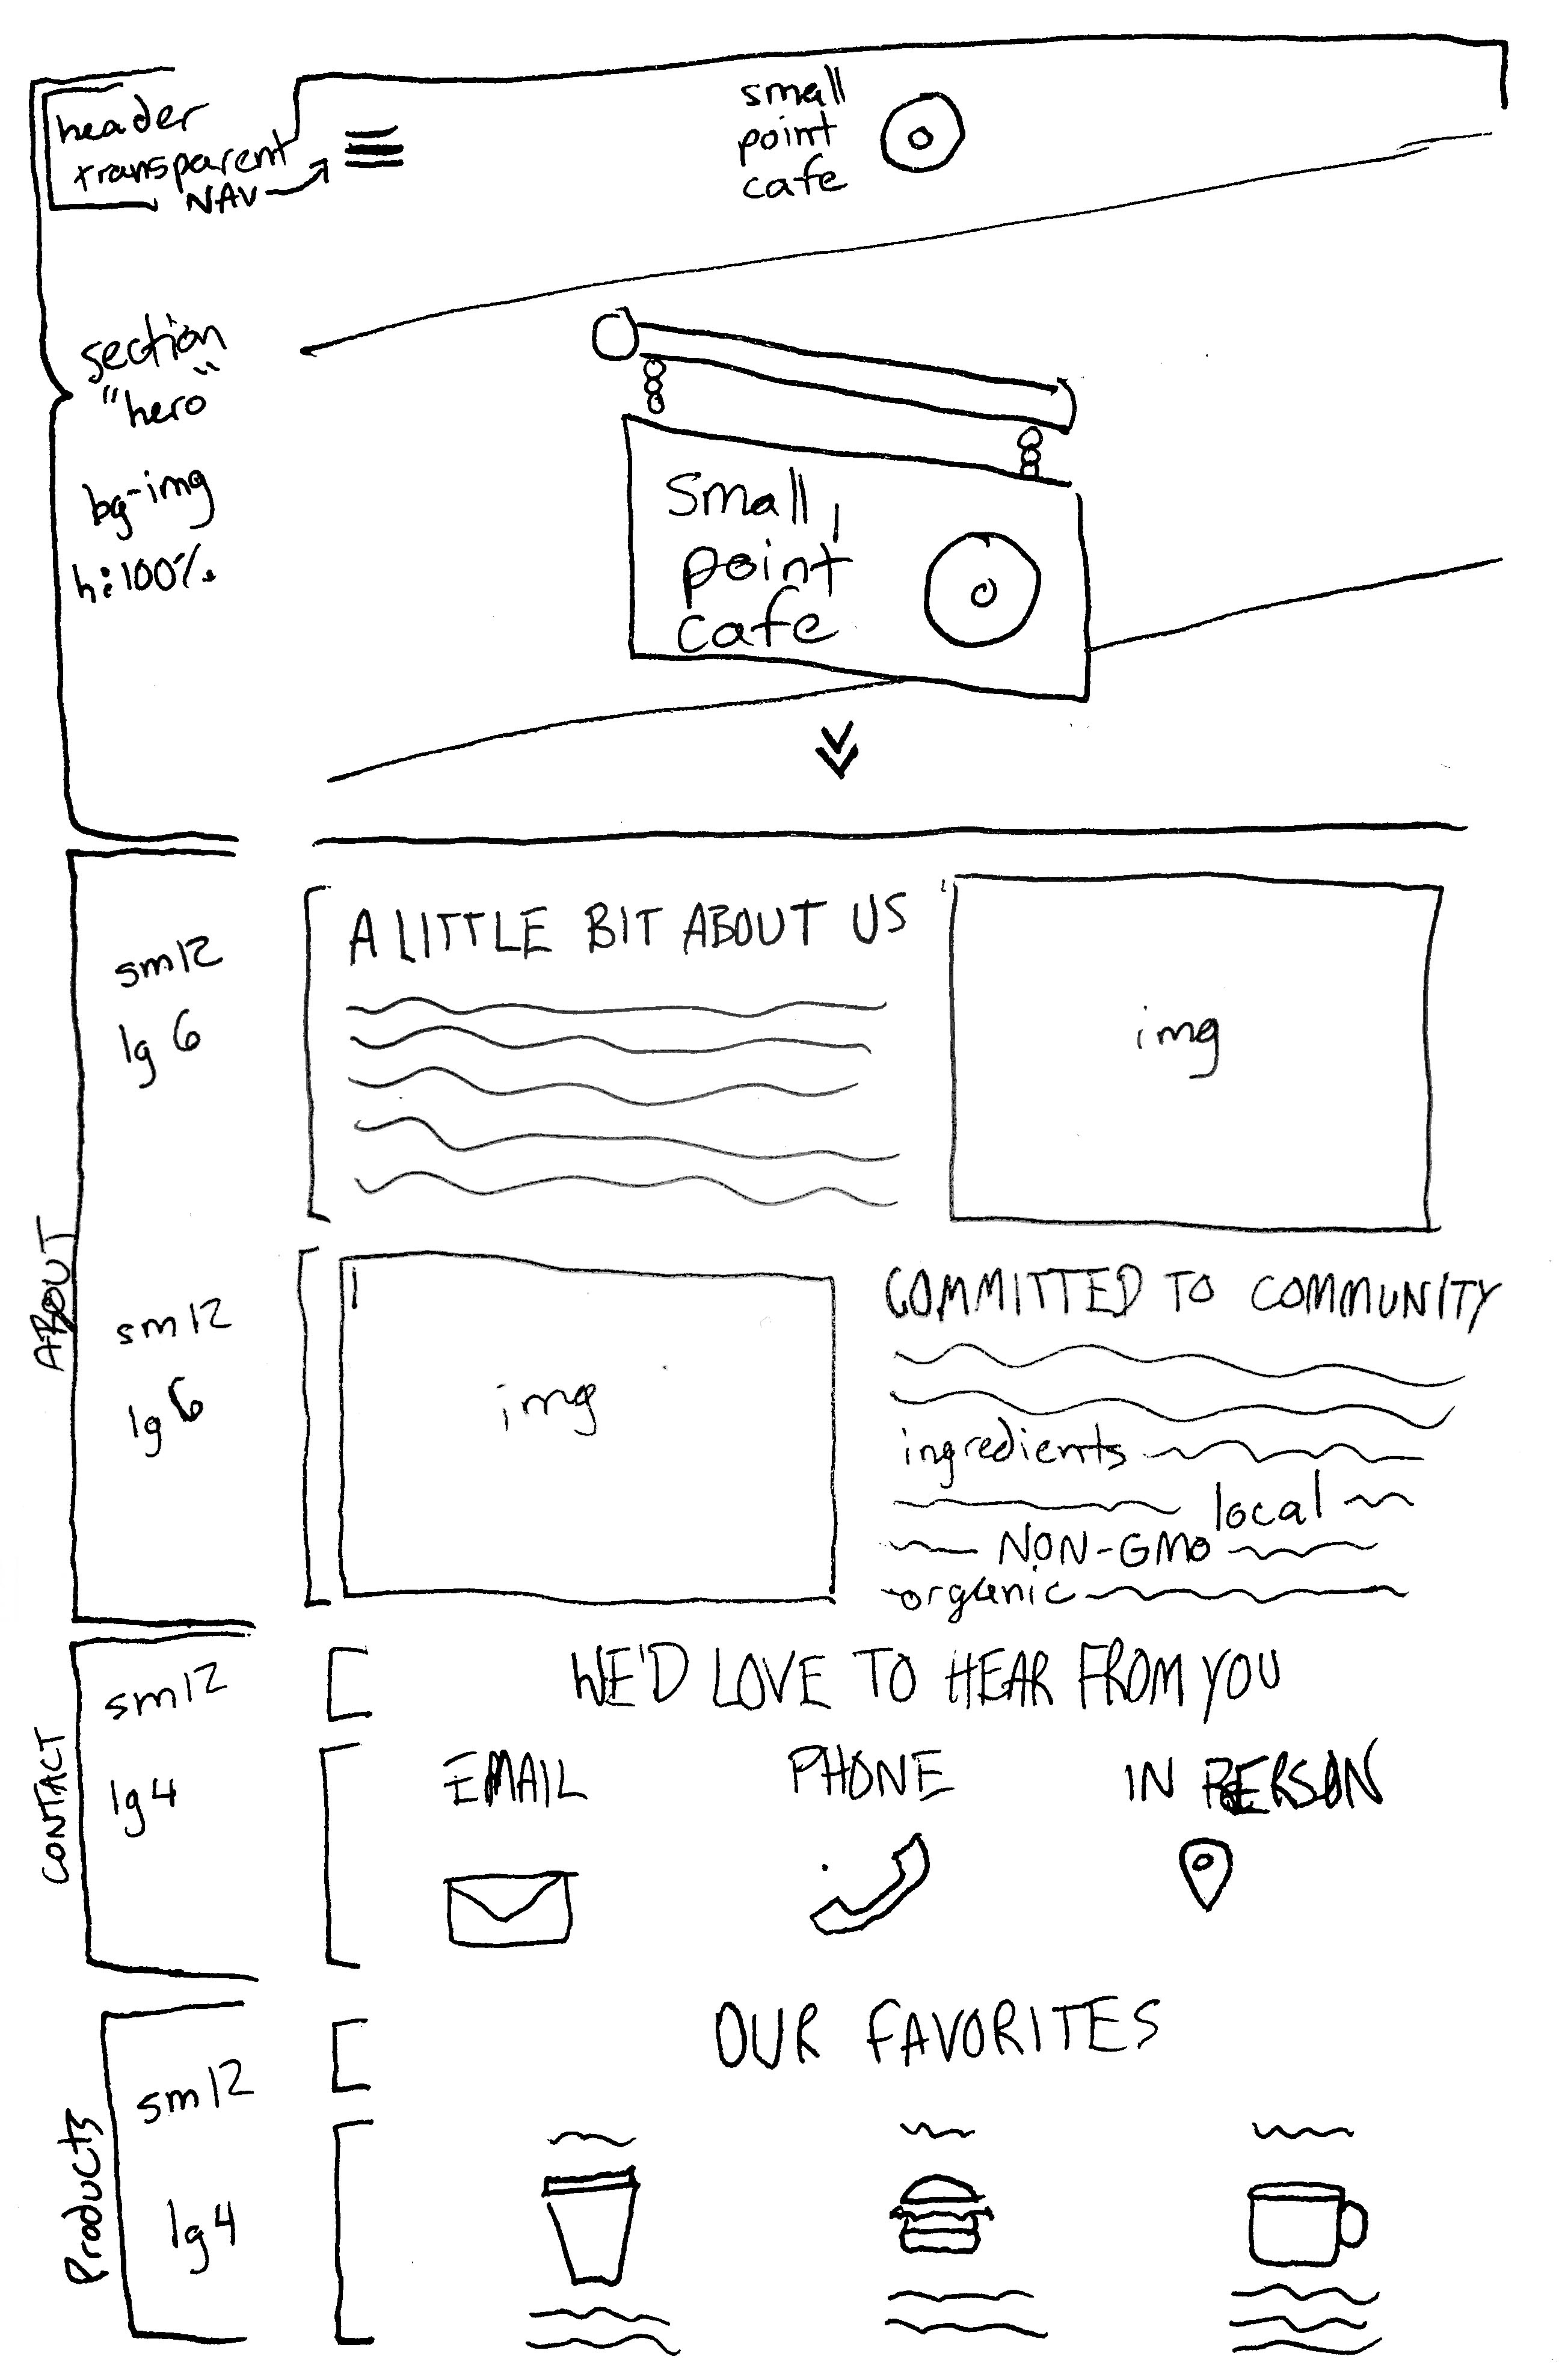 header
transparent
NAV
small
point
cafe
section
"hero"
bg-img
h:100%
small
point
cafe
ABOUT
sm12
lg 6
A LITTLE BIT ABOUT US
img
sm12
lg 6
img
COMMITTED TO COMMUNITY
ingredients
local
NON-GMO
organic
CONTACT
sm12
WE'D LOVE TO HEAR FROM YOU
lg4
EMAIL PHONE IN PERSON
Products
sm12
OUR FAVORITES
lg4